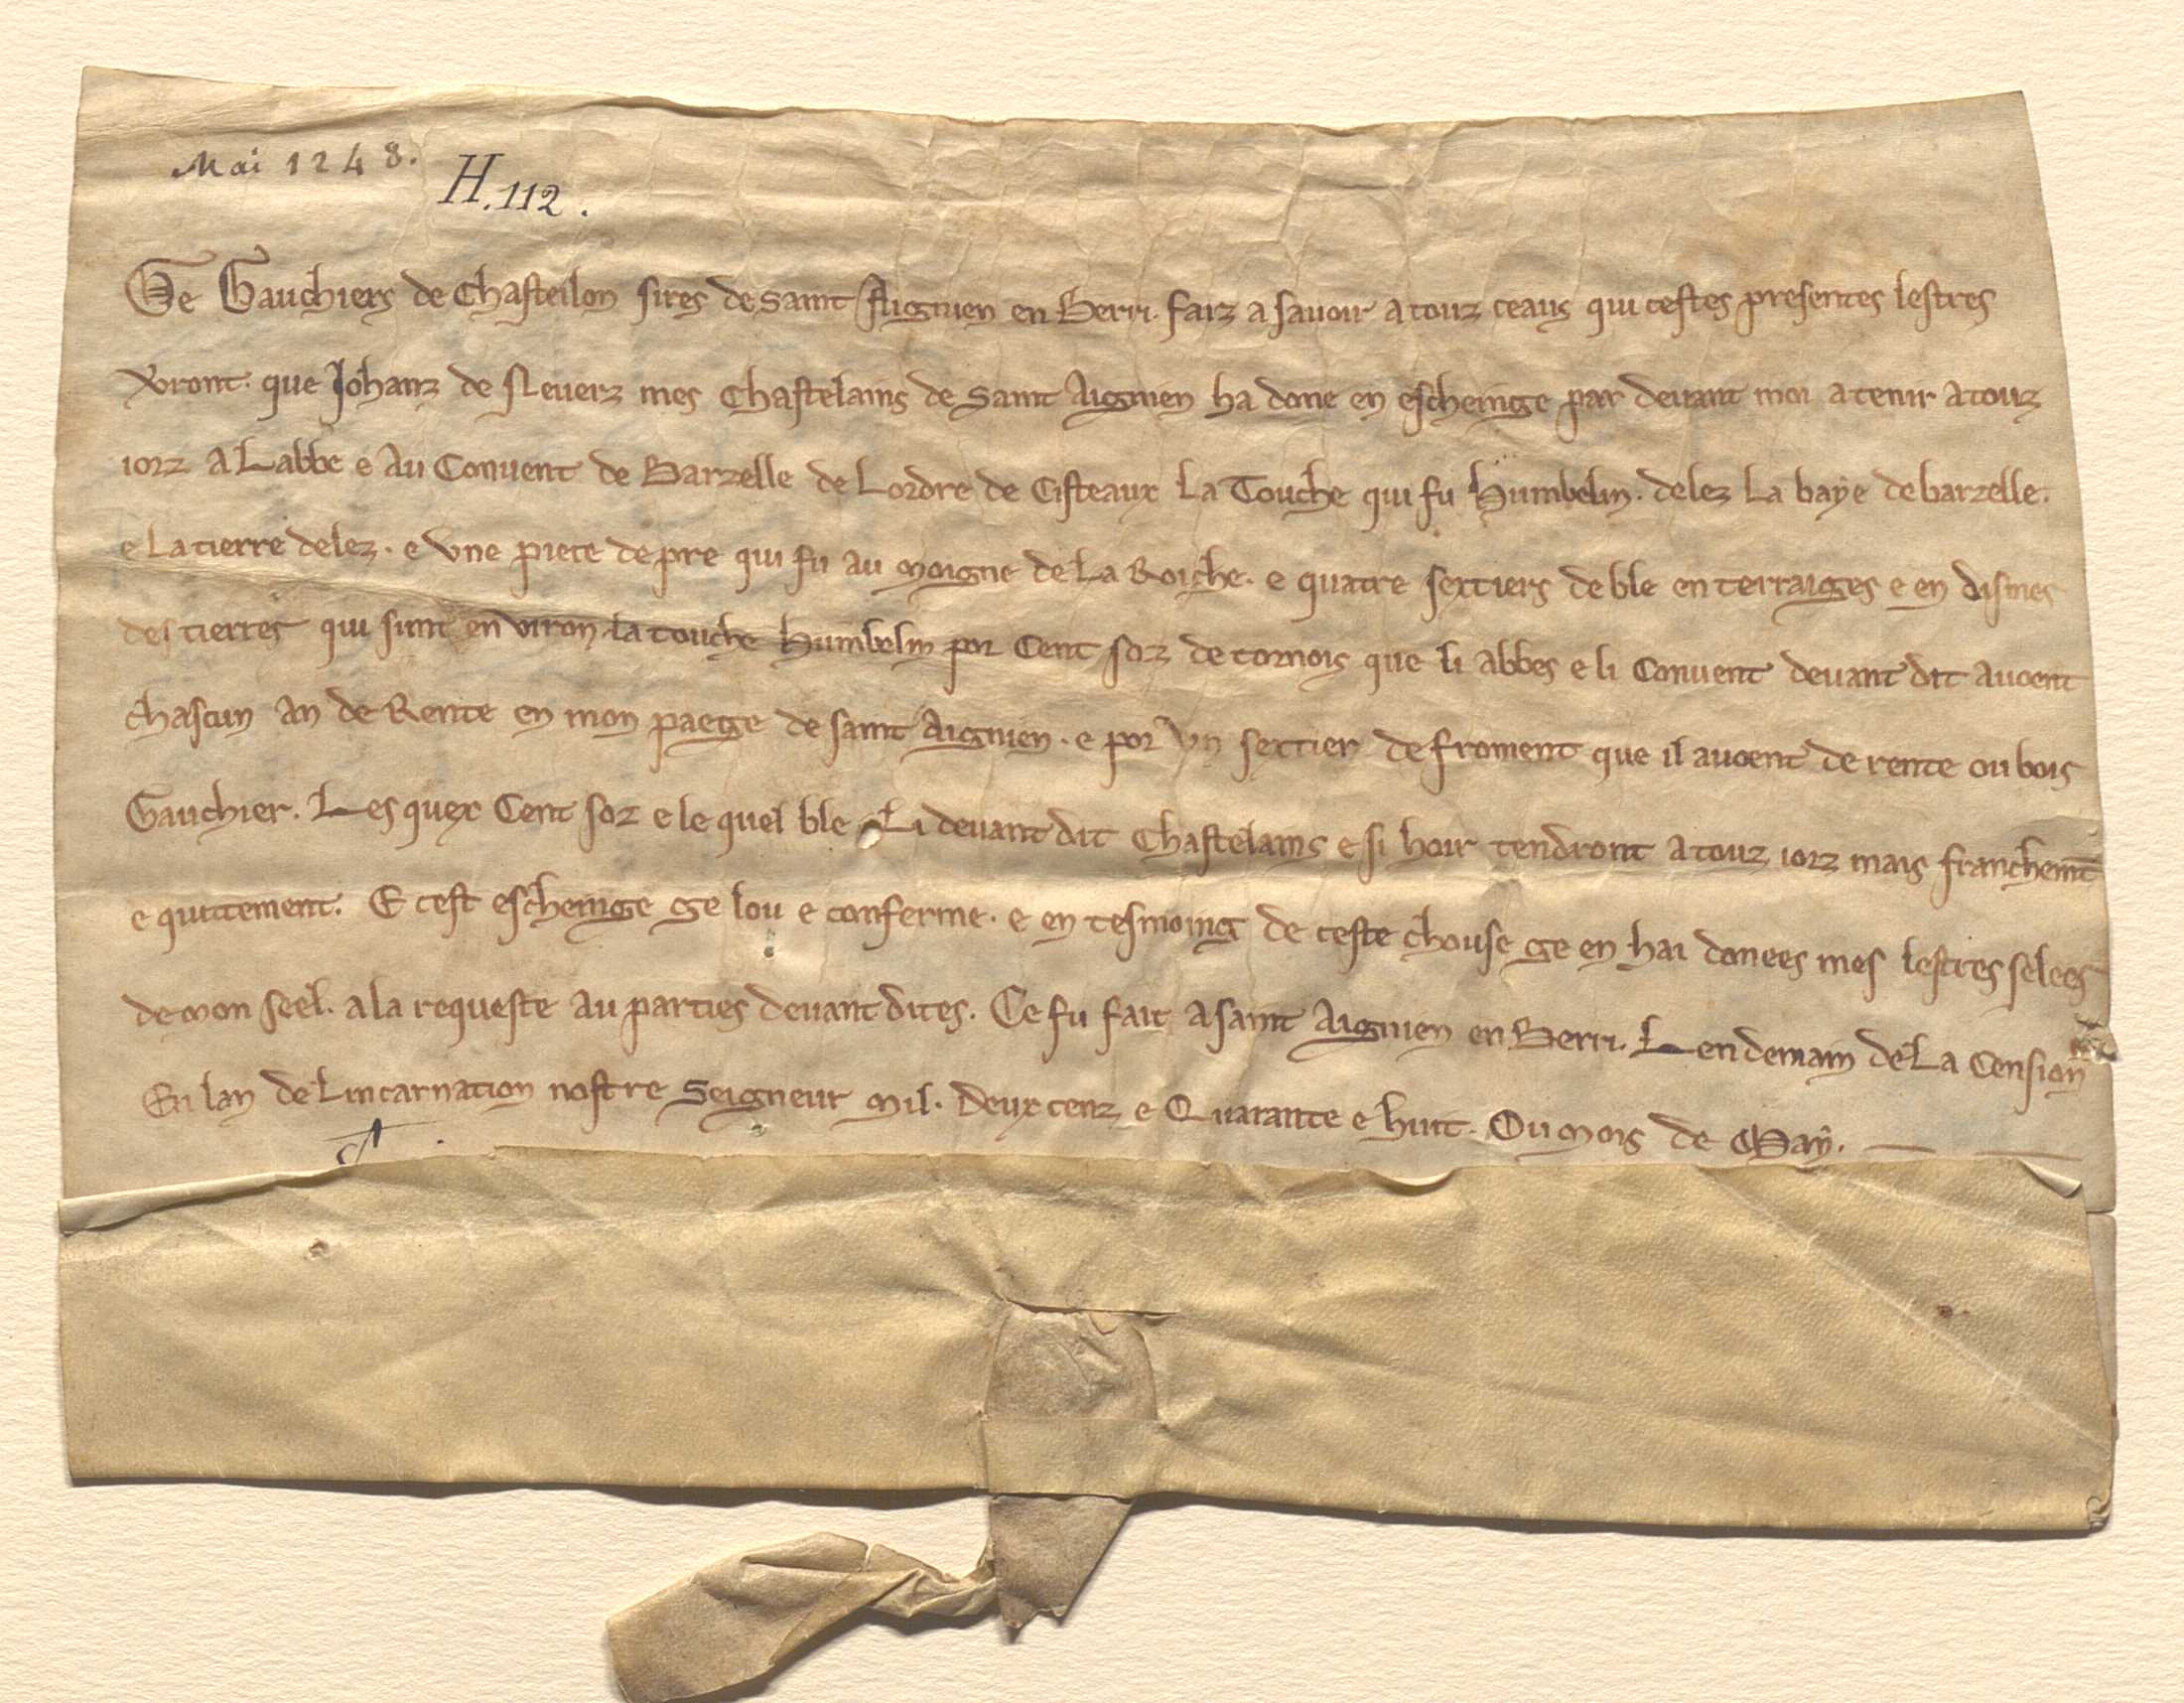 Mai 1248.
H. 112.
Ge Gauchiers de Chasteilon sires de Saint Aignien en Berri. faiz a savoir a touz ceaus qui cestes presentes lestres
verront. que Johanz de Nevers mes Chastelains de Saint Aignien ha done en escheinge par devant moi a tenir a touz
iorz a Labbe e au Convent de Barzelle de Lordre de Cisteaux La Touche qui fu Humbelin. delez La baÿe de barzelle.
e La tierre delez. e une piece de pre qui fu au moigne de La Roiche. e quatre sextiers de ble en terraiges e en dismes
des tierres qui sunt en viron la touche Humbelin por Cent sorz de tornois que li abbes e li Convent devant dit avoent
chascun an de Rente en mon paege de saint Aignien. e por un sextier de froment que il avoent de rente ou bois
Gauchier. Les quex Cent soz e le quel ble Li devant dit Chastelains e si hoir tendront a touz iorz mais franchemt
e quittement. E cest escheinge ge lou e conferme. e en tesmoing de ceste chouse ge en hai donees mes lestres selees
de mon seel. a la requeste au parties devant dites. Ce fu fait a saint Aignien en Berri. Lendemain de La Cension
En lan de Lincarnation nostre Seigneur mil. Deux cenz e Quarante e huit. Ou mois de Maÿ.